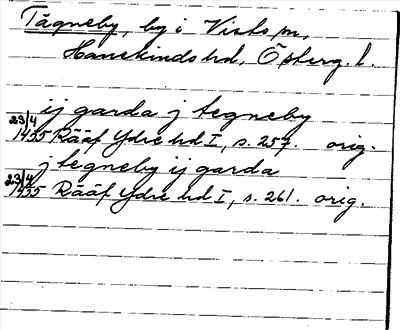 Tägneby, by i Vists sn,
Hanekinds hd, Österg. l.
ij garda j tegneby
23/4 1435 Rääf Ydre hd I, s. 257. orig.
j tegneby ij garda
23/4 1435 Rääf Ydre hd I, s. 261. orig.